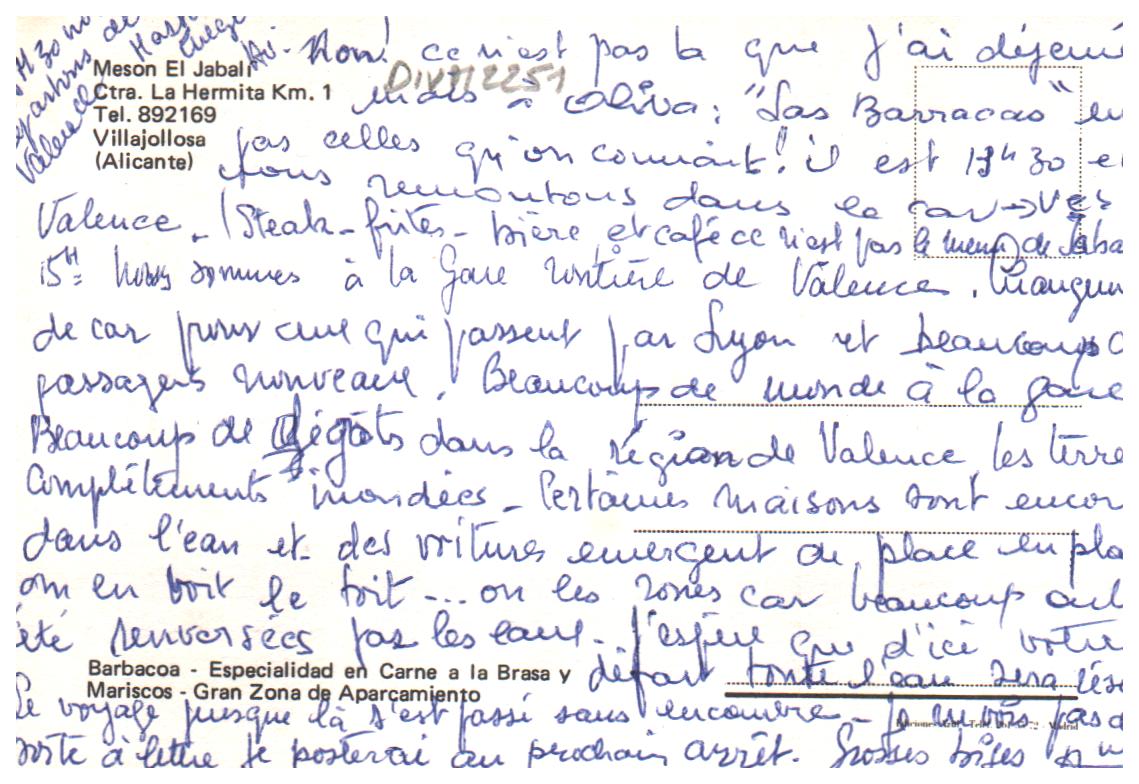 Non! ce n'est pas là que j'ai déjeuné
DIV712251
Meson El Jabali
Ctra. La Hermita Km. 1
Tel. 892169
Villajollosa
(Alicante)
mais à Oliva: "Las Barracas" en
pas celles qu'on connait! il est 13h30 et
nous remontons dans le car → vers
Valence. (Steak-frites-bière et café ce n'est pas le menu) de Jaba
15H: Nous sommes à la Gare routière de Valence.
de car pour ceux qui passent par Lyon et beaucoup d
passagers nouveaux. Beaucoup de monde à la gare
Beaucoup de dégâts dans la région de Valence, les terre
complètements inondées - Certaines maisons sont encor
dans l'eau et des voitures emergent de place en pla
on en voit le toit... ou les roues car beaucoup ont
été renversées par les eaux - J'espère que d'ici votre
départ toute l'eau sera rés
Barbacoa - Especialidad en Carne a la Brasa y
Mariscos - Gran Zona de Aparcamiento
Le voyage jusque là s'est passé sans encombre - je ne vois pas d
boite à lettre je posterai au prochain arrêt. Grosses bises